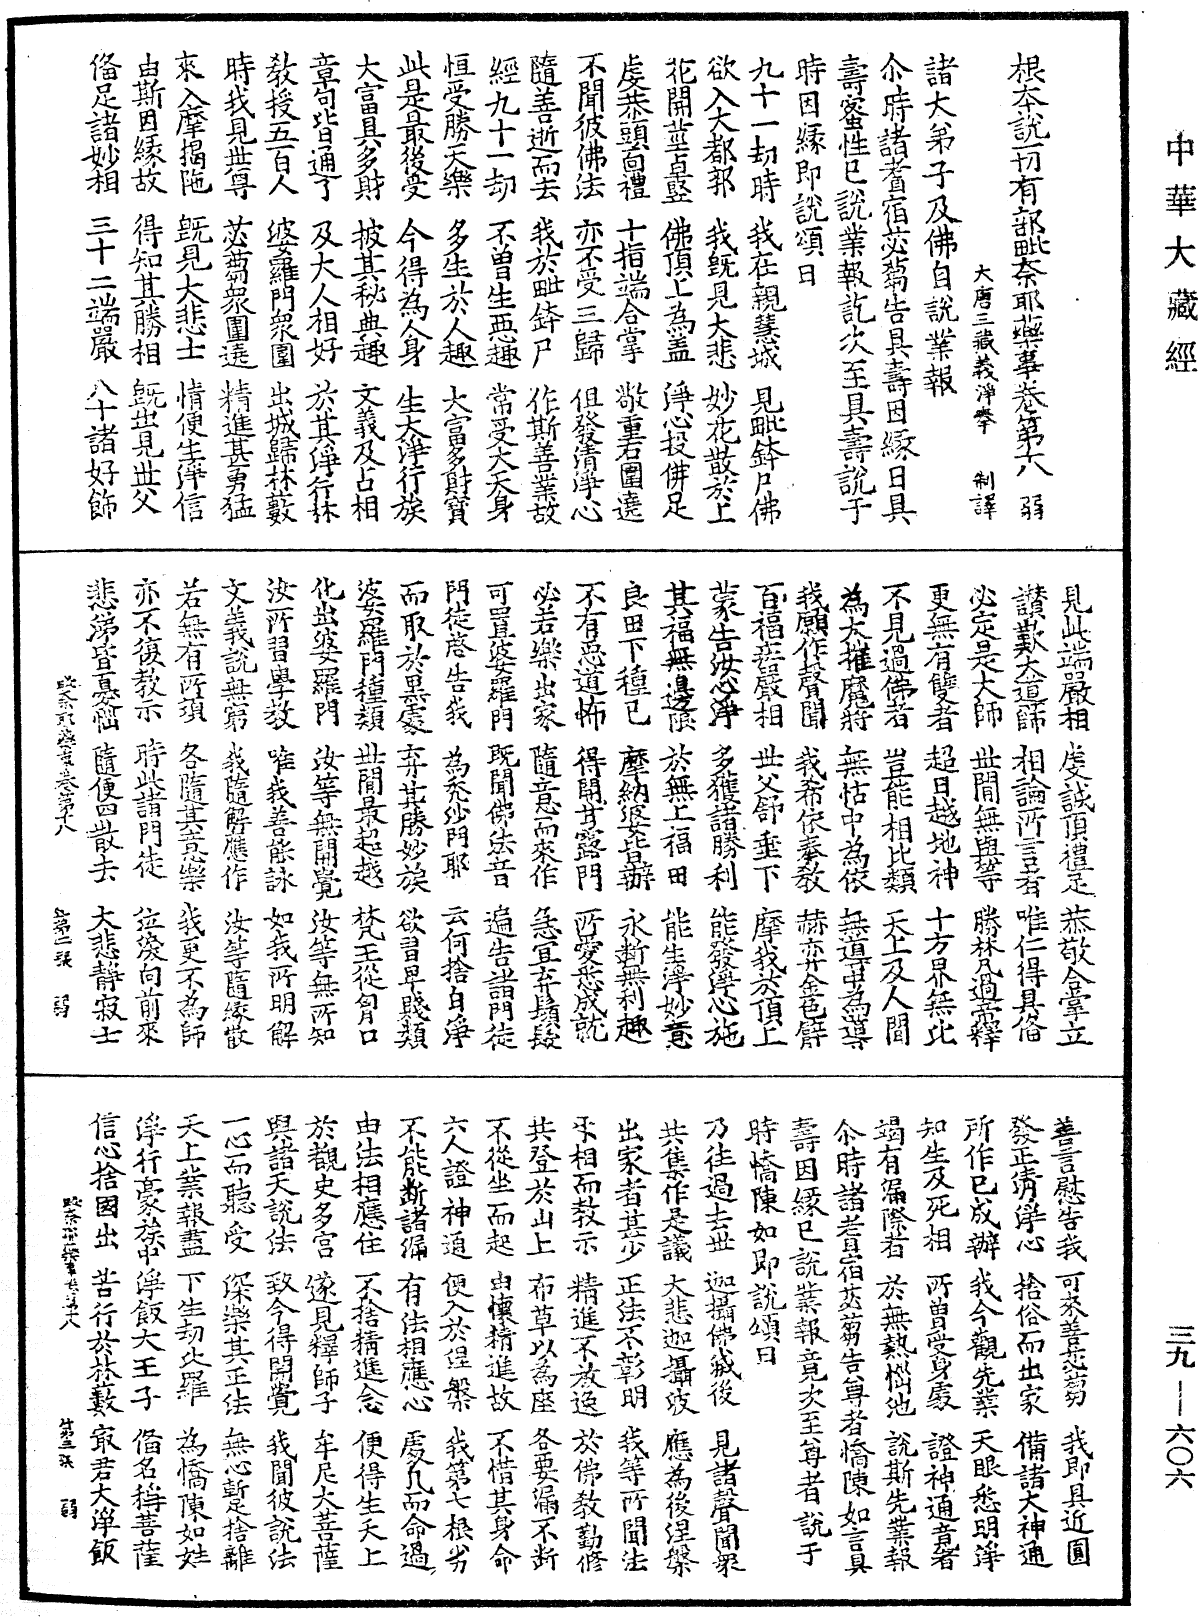 中華大藏經
根本說一切有部毗奈耶藥事卷第十八 弱
大唐三藏義淨奉 制譯
諸大弟子及佛自說業報
尒時諸耆宿苾蒭告具壽因緣曰具
壽蜜性已說業報訖次至具壽說于
時因緣即說頌曰
九十一劫時 我在親慧城 見毗鉢尸佛
欲入大都郭 我旣見大悲 妙花散於上
花開並卓竪 佛頂上為蓋 淨心投佛足
虔恭頭面禮 十指端合掌 敬重右圍遶
不聞彼佛法 亦不受三歸 但發清淨心
隨善逝而去 我於毗鉢尸 作斯善業故
經九十一劫 不曾生惡趣 常受大天身
恒受勝天樂 多生於人趣 大富多財寶
此是最後受 今得為人身 生大淨行族
大富具多財 披其秘典趣 文義及占相
章句皆通了 及大人相好 於其淨行林
教授五百人 婆羅門衆圍 出城歸林藪
時我見世尊 苾蒭衆圍遶 精進甚勇猛
來入摩揭陁 旣見大悲士 情便生淨信
由斯因緣故 得知其勝相 旣出見世父
俻足諸妙相 三十二端嚴 八十諸好飾
見此端嚴相 虔誠頂禮足 恭敬合掌立
讃歎大導師 相論所言者 唯仁得具俻
必定是大師 世閒無與等 勝林凡過帝釋
更無有雙者 超日越地神 十方界無比
不見過佛者 豈能相比類 天上及人閒
為大摧魔將 無怙中為依 無導中為導
我願作聲聞 我希依奉教 赫弈金色臂
百福莊嚴相 世父舒垂下 摩我於頂上
蒙告汝心淨 多獲諸勝利 能發淨心施
其福無邊限 於無上福田 能生淨妙意
良田下種已 摩納婆皆辦 永斷無利趣
不有惡道怖 得開甘露門 所愛悉成就
必若樂出家 隨意而來作 急宜弃鬚髮
可置婆羅門 旣聞佛法音 遍告諸門徒
門徒啓告我 為禿沙門耶 云何捨白淨
而取於黑處 弃其勝妙族 欲習卑賤類
婆羅門種類 世閒最超越 梵王從胷口
化出婆羅門 汝等無開覺 汝等無所知
汝所習學教 唯我善能詠 如我所明解
文義說無窮 我隨解應作 汝等隨緣散
若無有所須 各隨其意樂 我更不為師
亦不復教示 時此諸門徒 泣淚向前來
悲涕皆憂惱 隨便四散去 大悲靜寂士
毗奈耶藥事卷第十八 第二張 弱
善言慰告我 可來善苾蒭 我即具近圓
發正清淨心 捨俗而出家 備諸大神通
所作已成辦 我今觀先業 天眼悉明淨
知生及死相 所曾受身處 證神通竟者
竭有漏際者 於無熱惱池 說斯先業報
尒時諸耆宿苾蒭告尊者憍陳如言具
壽因緣已說業報竟次至尊者說于
時憍陳如即說頌曰
乃往過去世 迦攝佛滅後 見諸聲聞衆
共集作是議 大悲迦攝波 應為後涅槃
出家者甚少 正法不彰明 我等所聞法
乎相而教示 精進不放逸 於佛教勤修
共登於山上 布草以為座 各要漏不斷
不從坐而起 由懷精進故 不惜其身命
六人證神通 便入於涅槃 我第七根劣
不能斷諸漏 有法相應心 處凡而命過
由法相應住 不捨精進念 便得生天上
於覩史多宮 遂見釋師子 牟尼大菩薩
與諸天說法 致今得開覺 我聞彼說法
一心而聽受 深樂其正法 無心暫捨離
天上業報盡 下生劫比羅 為憍陳如姓
淨行豪族中 淨飯大王子 俻名稱菩薩
信心捨國出 苦行於林藪 㝡君大淨飯
毗奈耶藥事卷第十八 第三張 弱
三九—六〇六